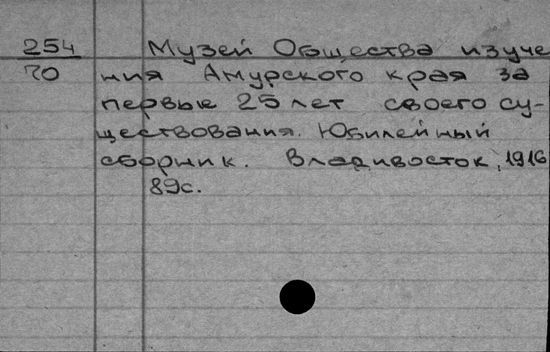 254 Музей Общества изуче
70 ния Амурского края за
первые 25 лет своего су-
ществования. Юбилейный
сборник. Владивосток, 1916
89с.